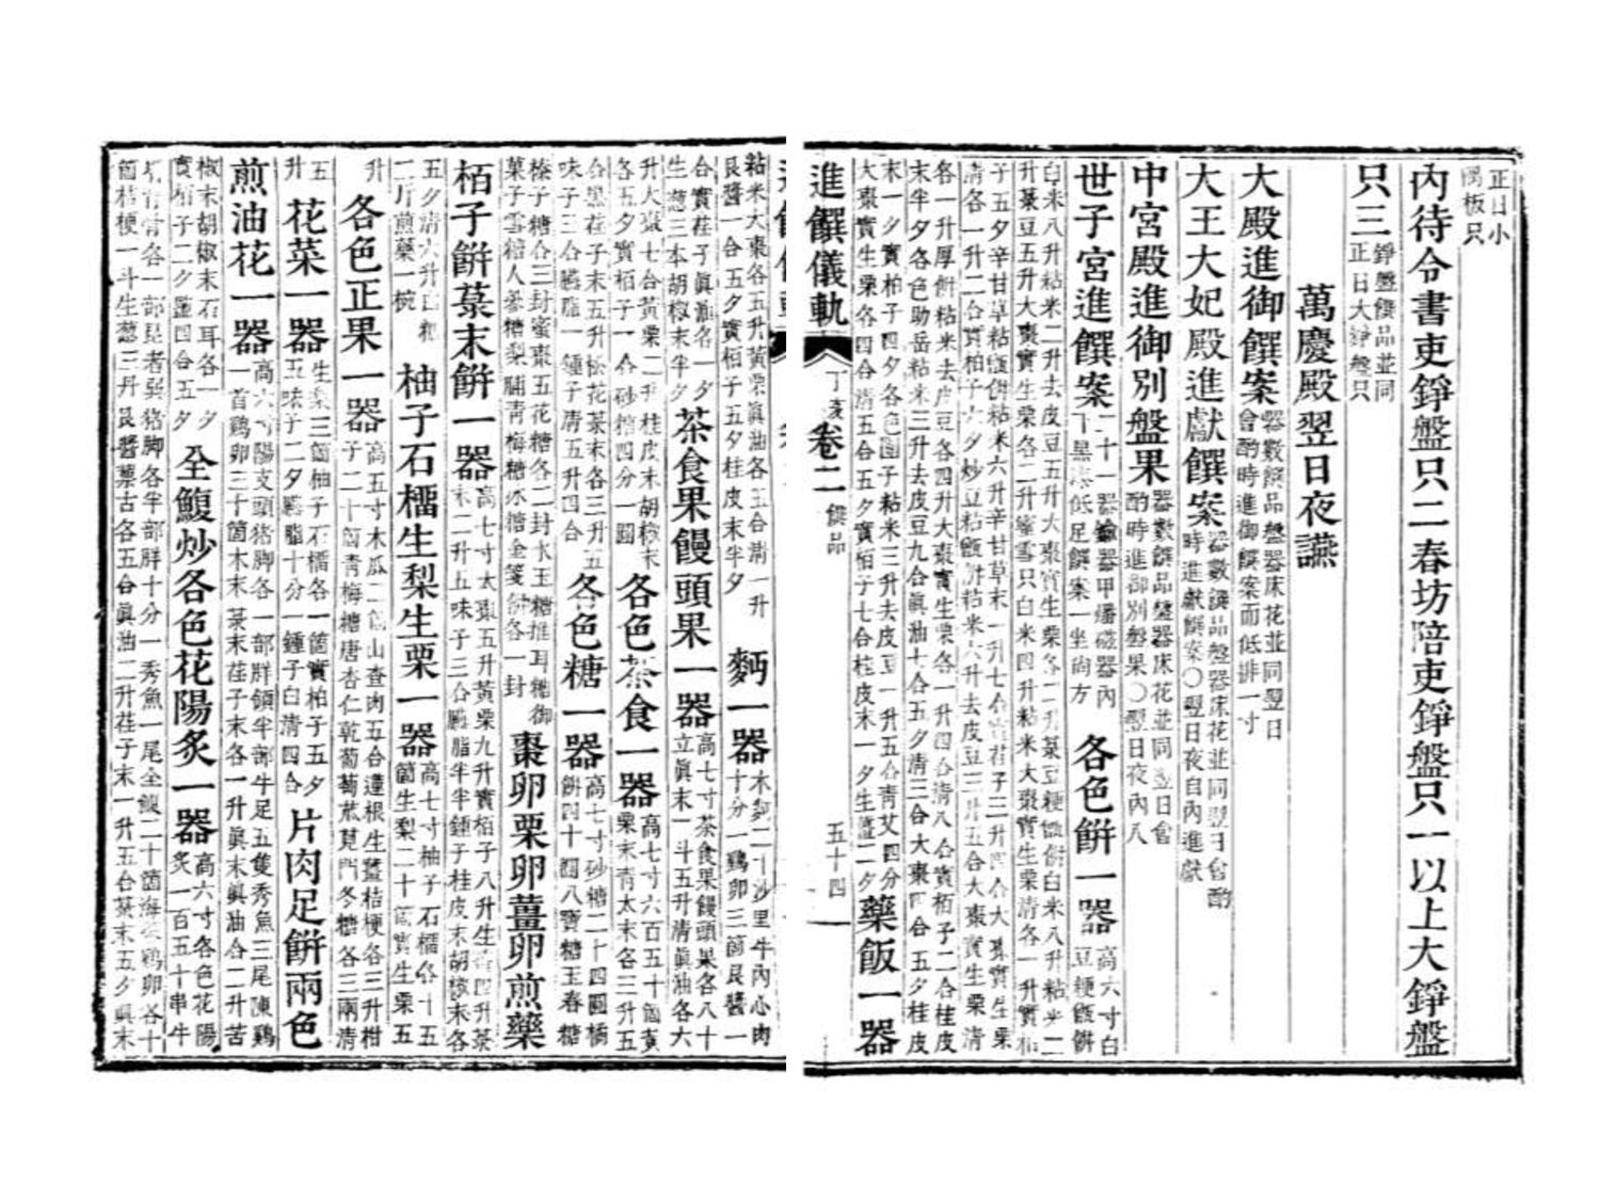 正日小
圓板只
內待令書吏錚盤只二春坊陪吏錚盤只一以上大錚盤
只三
錚盤饌品並同
正日大錚盤只
萬慶殿翌日夜讌
大殿進御饌案
器數饌品盤器床花並同翌日
會酌時進御饌案而低排一寸
大王大妃殿進獻饌案
器數饌品盤器床花並同翌日會酌
時進獻饌案〇翌日夜自內進獻
中宮殿進御別盤果
器數饌品盤器床花並同翌日會
酌時進御別盤果〇翌日夜內入
世子宮進饌案
二十一器鍮器甲燔磁器內
下黑漆低足饌案一坐尚方
各色餠一器
高六寸白
豆粳甑餠
白米八升粘米二升去皮豆五升大棗實生栗各二升菉豆粳甑餠白米八升粘米二
升菉豆五升大棗實生栗各二升蜜雪只白米四升粘米大棗實生栗淸各一升實栢
子五夕辛甘草粘甑餠粘米六升辛甘草末一升七合實荏子二升四合大棗實生栗
淸各一升二合實栢子六夕炒豆粘甑餠粘米六升去皮豆三升五合大棗實生栗淸
各一升厚餠粘米去皮豆各四升大棗實生栗各一升四合淸八合實栢子二合桂皮
末半夕各色助岳粘米三升去皮豆九合眞油七合五夕淸三合大棗四合五夕桂皮
末一夕實栢子四夕各色團子粘米三升去皮豆一升五合靑艾四分
大棗實生栗各四合淸五合五夕實栢子七合桂皮末一夕生薑二夕
藥飯一器
進饌儀軌
卷二
饌品
五十四
粘米大棗各五升黃栗眞油各五合淸一升
艮醬一合五夕實栢子五夕桂皮末半夕
麪一器
木麪二十沙里牛內心肉
十分一鷄卵三箇艮醬一
合實荏子眞油各一夕
生葱三本胡椒末半夕
茶食果饅頭果一器
高七寸茶食果饅頭果各八十
立眞末一斗五升淸眞油各六
升大棗七合黃栗二升桂皮末胡椒末
各五夕實栢子一合砂糖四分一圓
各色茶食一器
高七寸六百五十箇黃
栗末靑太末各三升五
合黑荏子末五升松花菉末各三升五
味子三合臙脂一鍾子淸五升四合
各色糖一器
高七寸砂糖二十四圓橘
餠四十圓八寶糖玉春糖
榛子糖各三封蜜棗五花糖各二封氷玉糖推耳糖御
菓子雪糖人蔘糖梨脯靑梅糖氷糖金箋餠各一封
棗卵栗卵薑卵煎藥
栢子餠菉末餠一器
高七寸大棗五升黃栗九升實栢子八升生薑四升菉
末二升五味子三合臙脂半半鍾子桂皮末胡椒末各
五夕淸六升白糖
二斤煎藥一椀
柚子石榴生梨生栗一器
高七寸柚子石榴各十五
箇生梨二十箇實生栗五
升
各色正果一器
高五寸木瓜二箇山查肉五合蓮根生薑桔梗各三升柑
子二十箇靑梅糖唐杏仁乾葡萄苽莧門冬糖各三兩淸
五
升
花菜一器
生梨三箇柚子石榴各一箇實栢子五夕
五味子二夕臙脂十分一鍾子白淸四合
片肉足餠兩色
煎油花一器
高六寸陽支頭猪脚各一部胖領半部牛足五隻秀魚三尾陳鷄
一首鷄卵三十箇木末菉末荏子末各一升眞末眞油合二升苦
椒末胡椒末石耳各一夕
實栢子二夕鹽四合五夕
全鰒炒各色花陽炙一器
高六寸各色花陽
炙一百五十串牛
背骨各一部昆者巽猪脚各半部胖十分一秀魚一尾全鰒二十箇海蔘鷄卵各十
箇桔梗一斗生葱三丹艮醬藁古各五合眞油二升荏子末一升五合菉末五夕眞末